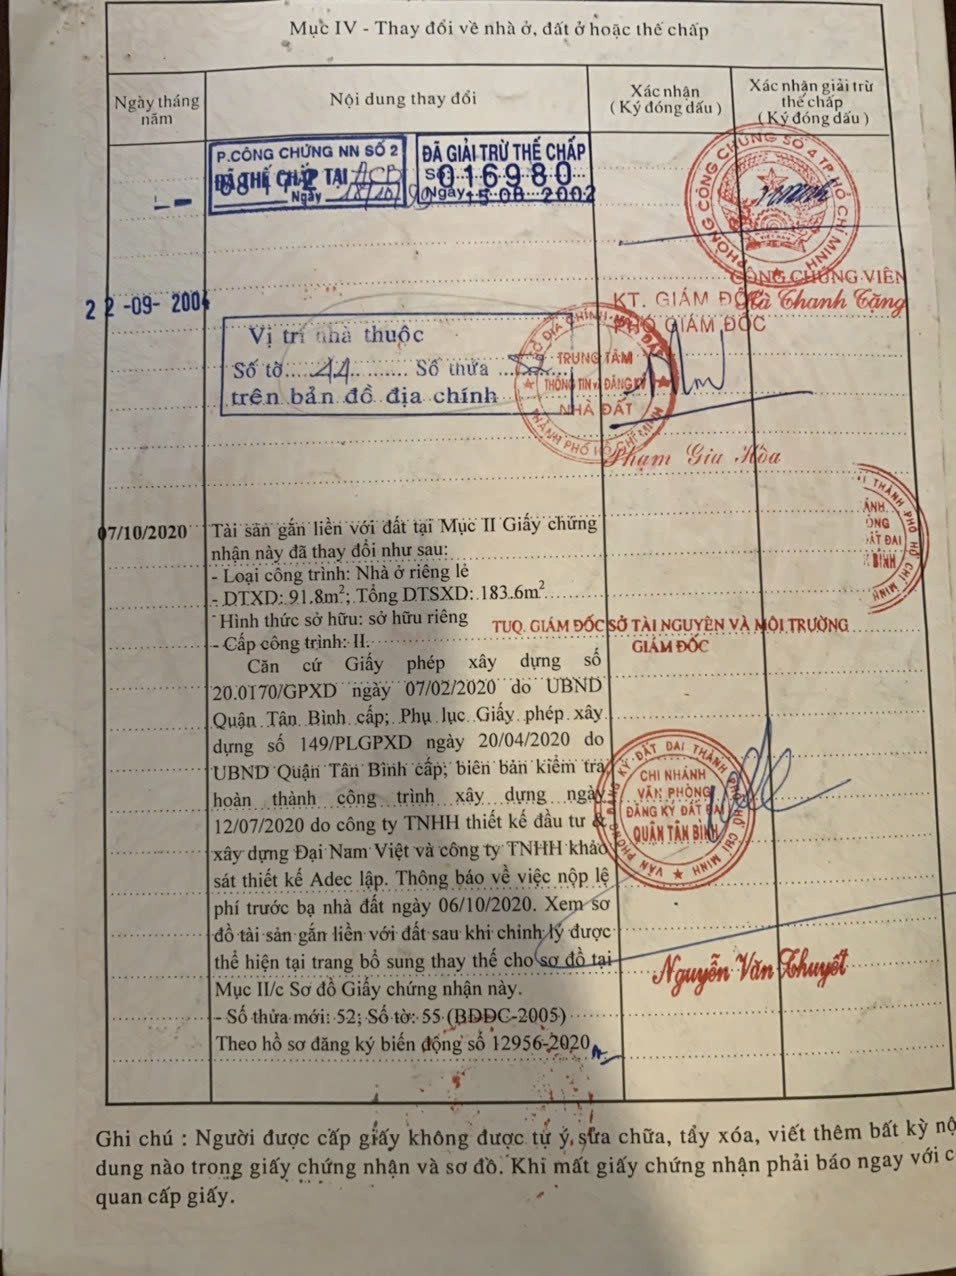 Mục IV - Thay đổi về nhà ở, đất ở hoặc thế chấp
Ngày tháng năm
Nội dung thay đổi
Xác nhận
( Ký đóng dấu )
Xác nhận giải trừ
thế chấp
( Ký đóng dấu )
P.CÔNG CHỨNG NN SỐ 2
ĐÃ THẾ CHẤP TẠI ACB
Ngày
ĐÃ GIẢI TRỪ THẾ CHẤP
Số 016980
Ngày 15-08-2002
PHÒNG CÔNG CHỨNG SỐ 4 TP. HỒ CHÍ MINH
CÔNG CHỨNG VIÊN
Hà Thanh Tặng
22-09-2004
KT. GIÁM ĐỐC
PHÓ GIÁM ĐỐC
Vị trí nhà thuộc
Số tờ 44 Số thửa
trên bản đồ địa chính
TRUNG TÂM
THÔNG TIN VÀ ĐĂNG KÝ
NHÀ ĐẤT
THÀNH PHỐ HỒ CHÍ MINH
Phạm Gia Hòa
07/10/2020
Tài sản gắn liền với đất tại Mục II Giấy chứng
nhận này đã thay đổi như sau:
- Loại công trình: Nhà ở riêng lẻ
- DTXD: 91.8m²; Tổng DTSXD: 183.6m²
- Hình thức sở hữu: sở hữu riêng
- Cấp công trình: II.
Căn cứ Giấy phép xây dựng số
20.0170/GPXD ngày 07/02/2020 do UBND
Quận Tân Bình cấp; Phụ lục Giấy phép xây
dựng số 149/PLGPXD ngày 20/04/2020 do
UBND Quận Tân Bình cấp; biên bản kiểm tra
hoàn thành công trình xây dựng ngày
12/07/2020 do công ty TNHH thiết kế đầu tư &
xây dựng Đại Nam Việt và công ty TNHH khảo
sát thiết kế Adec lập. Thông báo về việc nộp lệ
phí trước bạ nhà đất ngày 06/10/2020. Xem sơ
đồ tài sản gắn liền với đất sau khi chỉnh lý được
thể hiện tại trang bổ sung thay thế cho sơ đồ tại
Mục II/c Sơ đồ Giấy chứng nhận này.
- Số thửa mới: 52; Số tờ: 55 (BĐĐC-2005)
Theo hồ sơ đăng ký biến động số 12956-2020
TUQ. GIÁM ĐỐC SỞ TÀI NGUYÊN VÀ MÔI TRƯỜNG
GIÁM ĐỐC
VĂN PHÒNG ĐĂNG KÝ ĐẤT ĐAI THÀNH PHỐ HỒ CHÍ MINH
CHI NHÁNH
VĂN PHÒNG
ĐĂNG KÝ ĐẤT ĐAI
QUẬN TÂN BÌNH
Nguyễn Văn Thuyết
Ghi chú : Người được cấp giấy không được tự ý sửa chữa, tẩy xóa, viết thêm bất kỳ nộ
dung nào trong giấy chứng nhận và sơ đồ. Khi mất giấy chứng nhận phải báo ngay với c
quan cấp giấy.